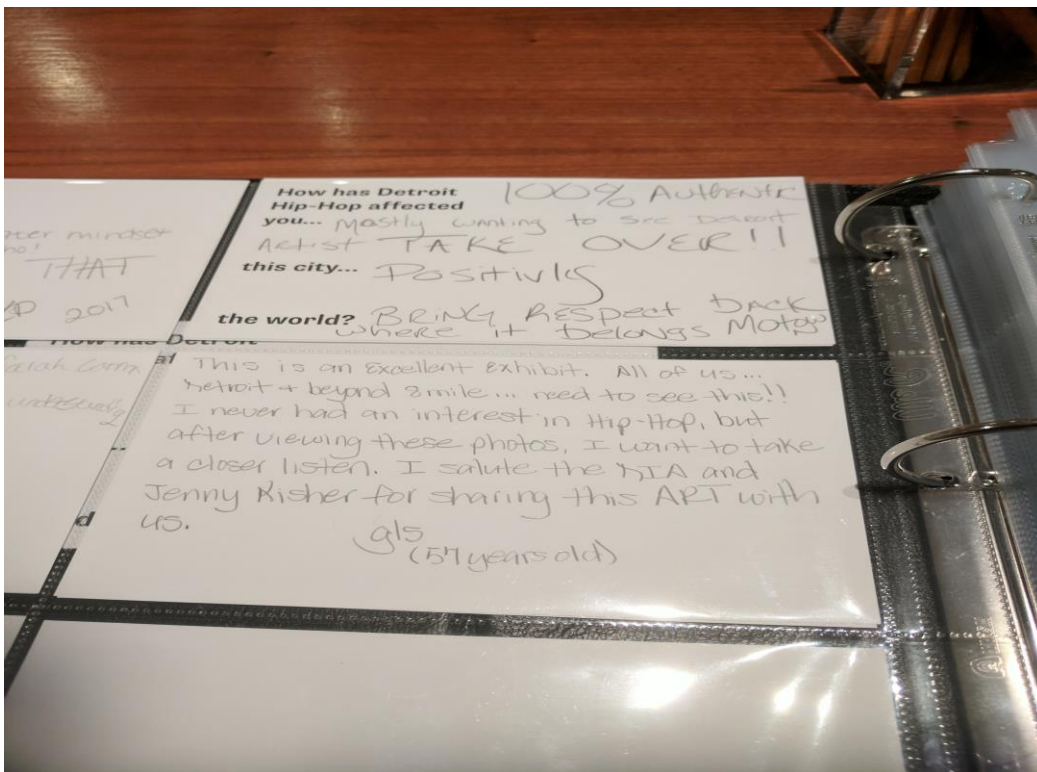 mindset
THAT
2017
How has Detroit 100% Authentic
Hip-Hop affected
you... Mostly wanting to see Detroit
Artist TAKE OVER!!
this city... Positivly
the world? BRING RESPECT BACK
where it Belongs Motow
How has Detroit
This is an Excellent Exhibit. All of us...
Detroit + beyond 8 mile... need to see this!!
I never had an interest in Hip-Hop, but
after viewing these photos, I want to take
a closer listen. I salute the DIA and
Jenny Risher for sharing this ART with
us.
gls
(57 years old)